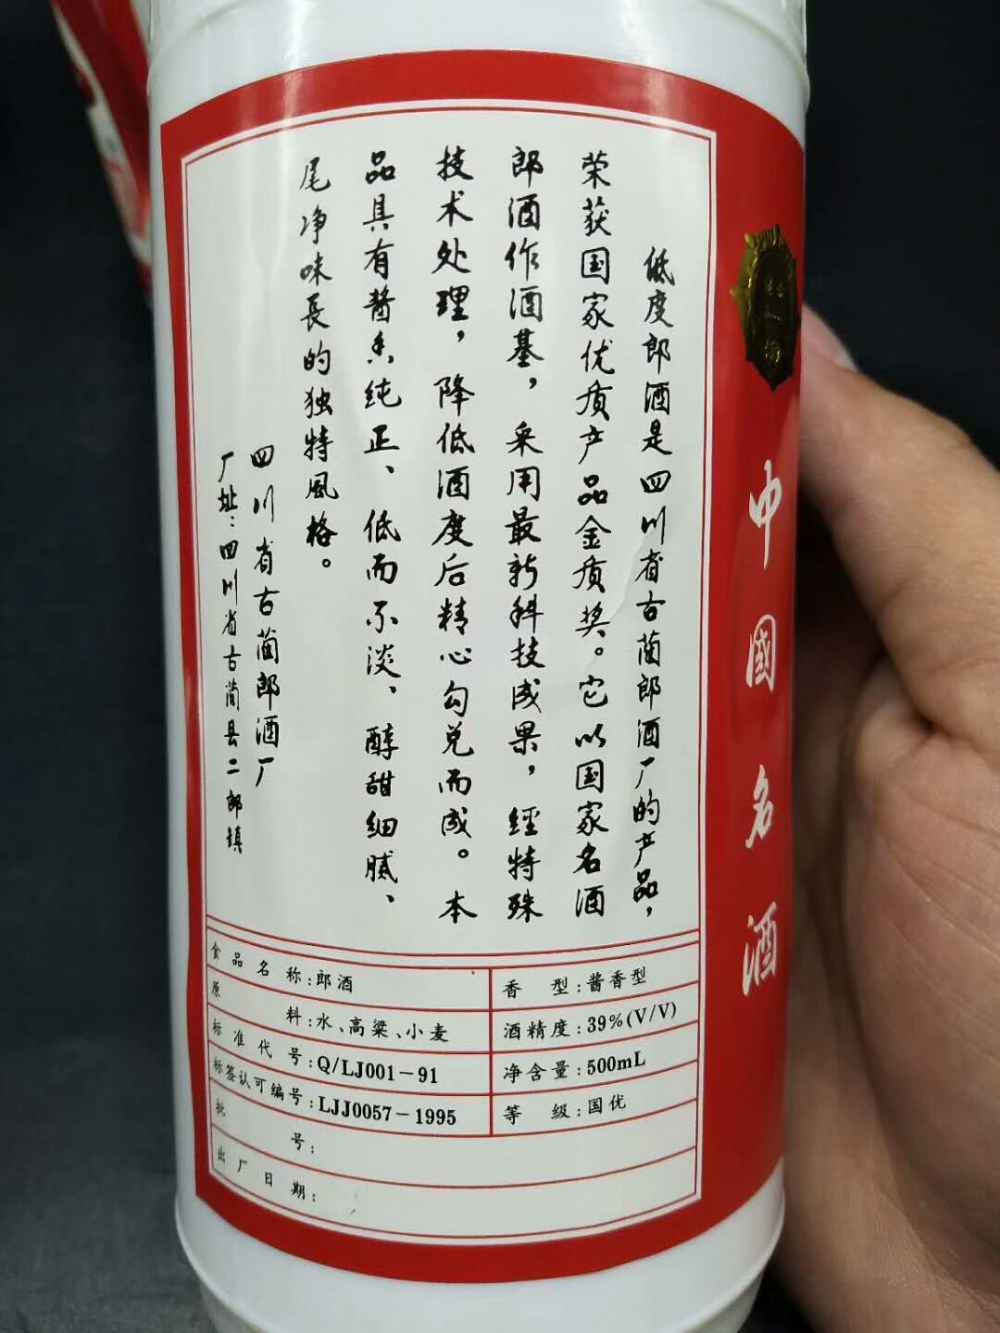 低度郎酒是四川省古蔺郎酒厂的产品，
荣获国家优质产品金质奖。它以国家名酒
郎酒作酒基，采用最新科技成果，經特殊
技术处理，降低酒度后精心勾兑而成。本
品具有酱香纯正、低而不淡、醇甜细腻、
尾净味長的独特風格。
四川省古蔺郎酒厂
厂址：四川省古蔺县二郎镇
中國名酒
食品名称：郎酒
香型：酱香型
原料：水、高粱、小麦
酒精度：39%(V/V)
标准代号：Q/LJ001-91
净含量：500mL
标签认可编号：LJJ0057-1995
等级：国优
批号：
出厂日期：